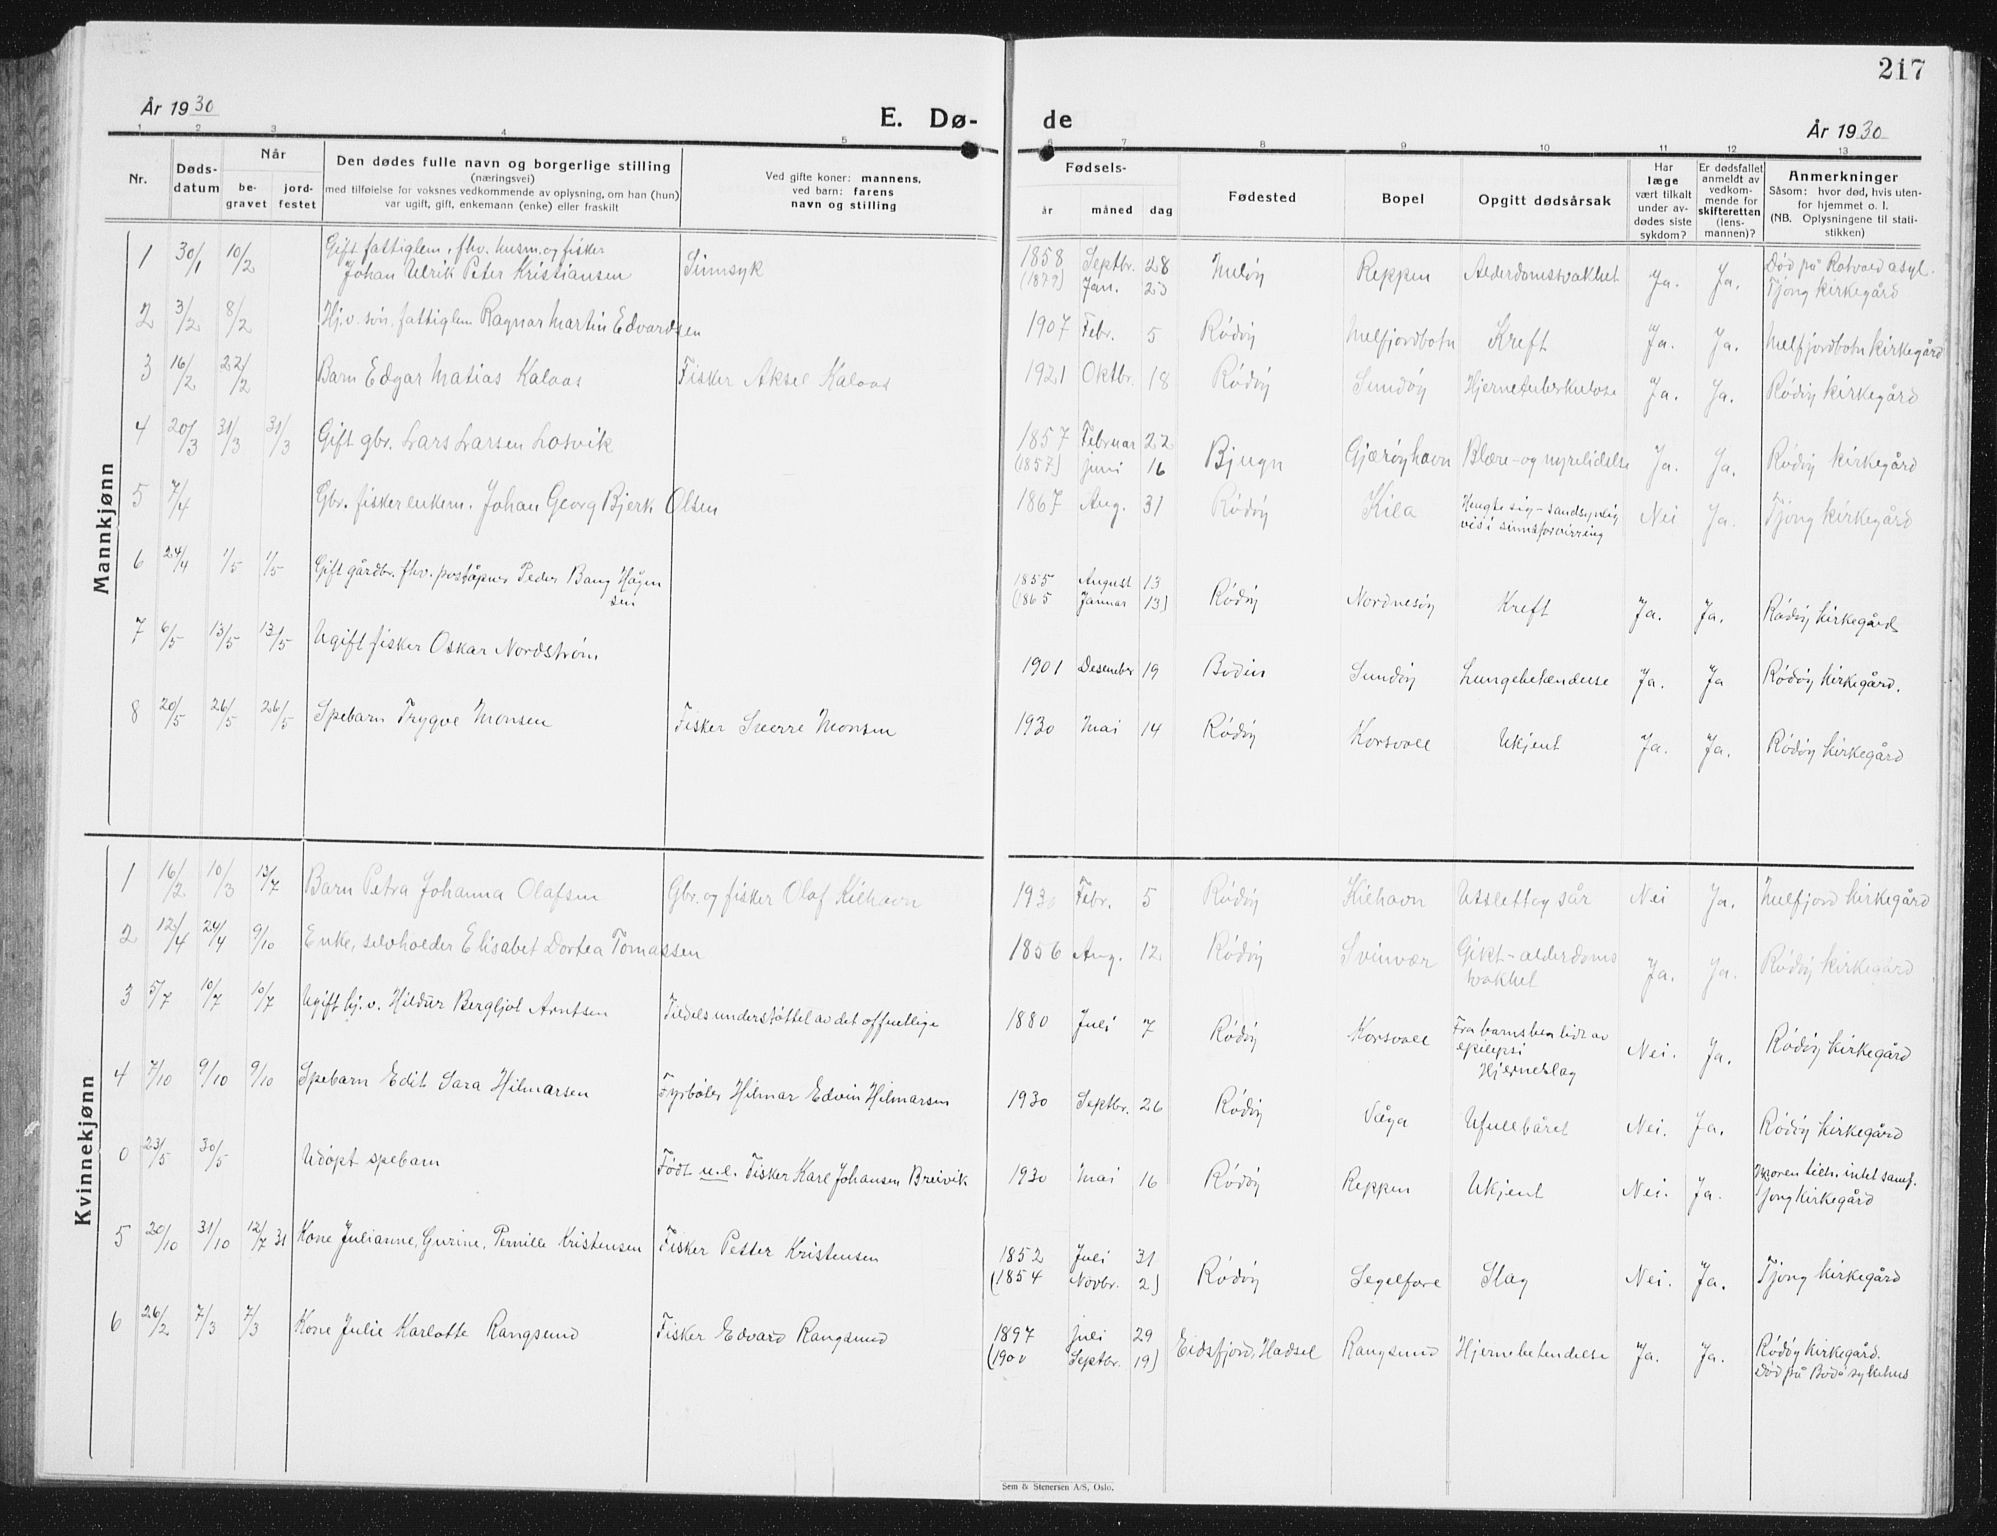 217
År 1930
E. Dø-
de
År 1930
1 2 3 4 5 6 7 8 9 10 11 12 13
Nr.
Døds-
datum
Når
be-
gravet
jord-
festet
Den dødes fulle navn og borgerlige stilling
(næringsvei)
med tilføielse for voksnes vedkommende av oplysning, om han (hun)
var ugift, gift, enkemann (enke) eller fraskilt
Ved gifte koner: mannens,
ved barn: farens
navn og stilling
Fødsels-
år måned dag
Fødested
Bopel
Opgitt dødsårsak
Har
læge
vært tilkalt
under av-
dødes siste
sykdom?
Er dødsfallet
anmeldt av
vedkom-
mende for
skifteretten
(lens-
mannen)?
Anmerkninger
Såsom: hvor død, hvis uten-
for hjemmet o. l.
(NB. Oplysningene til stati-
stikken)
Mannkjønn
Gift fattiglem, fhv. husm. og fisker
1 30/1 10/2 Johan Ulrik Peter Kristiansen Sinnsyk 1858 Septbr. 28 Meløy Reppen Alderdomsvakhet Ja. Ja. Død på Rotvold asyl.
(1879) Jan. 23 Tjong kirkegård
2 3/2 8/2 Hj.v. søn, fattiglem Ragnar Martin Edvardsen 1907 Febr. 5 Rødøy Melfjordbotn Kreft Ja. Ja. Melfjordbotn kirkegård
3 16/2 22/2 Barn Edgar Matias Kalaas Fisker Aksel Kalaas 1921 Oktbr. 18 Rødøy Sundøy Hjernetuberkulose Ja. Ja. Rødøy kirkegård
4 20/3 31/3 31/3 Gift gbr. Lars Larsen Losvik 1857 Februar 22 Bjugn Gjærøyhavn Blære- og nyrelidelse Ja. Ja. Rødøy kirkegård
(1857) juni 16
5 7/4 Gbr. fisker enkem. Johan Georg Bjerk Olsen 1867 Aug. 31 Rødøy Kila Hengte sig - sandsynlig
vis i sinnsforvirring Nei Ja. Tjong kirkegård
6 24/4 1/5 1/5 Gift gårdbr. fhv. poståpner Peder Bang Hågen
sen 1855 August 13 Rødøy Nordnesøy Kreft Ja. Ja. Rødøy kirkegård
(1865 Januar 13)
7 6/5 13/5 13/5 Ugift fisker Oskar Nordstrøm 1901 Desember 19 Bodin Sundøy Lungebetendelse Ja. Ja Rødøy kirkegård.
8 20/5 26/5 26/5 Spebarn Trygve Monsen Fisker Sverre Monsen 1930 Mai 14 Rødøy Korsvoll Ukjent Ja. Ja. Rødøy kirkegård
Kvinnekjønn
1 16/2 10/3 13/7 Barn Petra Johanna Olafsen Gbr. og fisker Olaf Kilhavn 1930 Febr. 5 Rødøy Kilhavn Utslett og sår Nei Ja. Melfjord kirkegård
2 12/4 24/4 9/10 Enke, selvholder Elisabet Dortea Tomassen 1856 Aug. 12 Rødøy Svinvær Gikt - alderdoms
vakhet Ja. Ja. Rødøy kirkegård
3 5/7 10/7 10/7 Ugift hj. v. Hildur Bergljot Arntsen Tildels understøttet av det offentlige 1880 Juli 7 Rødøy Korsvoll Fra barnsben lidt av
epilepsi
Hjerneslag Nei. Ja. Rødøy kirkegård
4 7/10 9/10 9/10 Spebarn Edit Sara Hilmarsen Fyrbøter Hilmar Edvin Hilmarsen 1930 Septbr. 26 Rødøy Våga Ufullbåret Nei. Ja. Rødøy kirkegård
0 23/5 30/5 Udøpt spebarn Født u.e. Fisker Karl Johansen Breivik 1930 Mai 16 Rødøy Reppen Ukjent Nei. Ja. Moren tilh. intet samf.
Tjong kirkegård
5 20/10 31/10 12/7 31 Kone Julianne, Gurine, Pernille Kristensen Fisker Petter Kristensen 1852 Juli 31 Rødøy Segelfore Slag Nei. Ja. Tjong kirkegård
(1854 Novbr. 2)
6 26/2 7/3 7/3 Kone Julie Karlotte Rangsund Fisker Edvard Rangsund 1897 juli 29 Eidsfjord, Hadsel Rangsund Hjernebetendelse Ja. Ja. Rødøy kirkegård.
(1900 Septbr. 19) Død på Bodø sykehus
Sem & Stenersen A/S, Oslo.